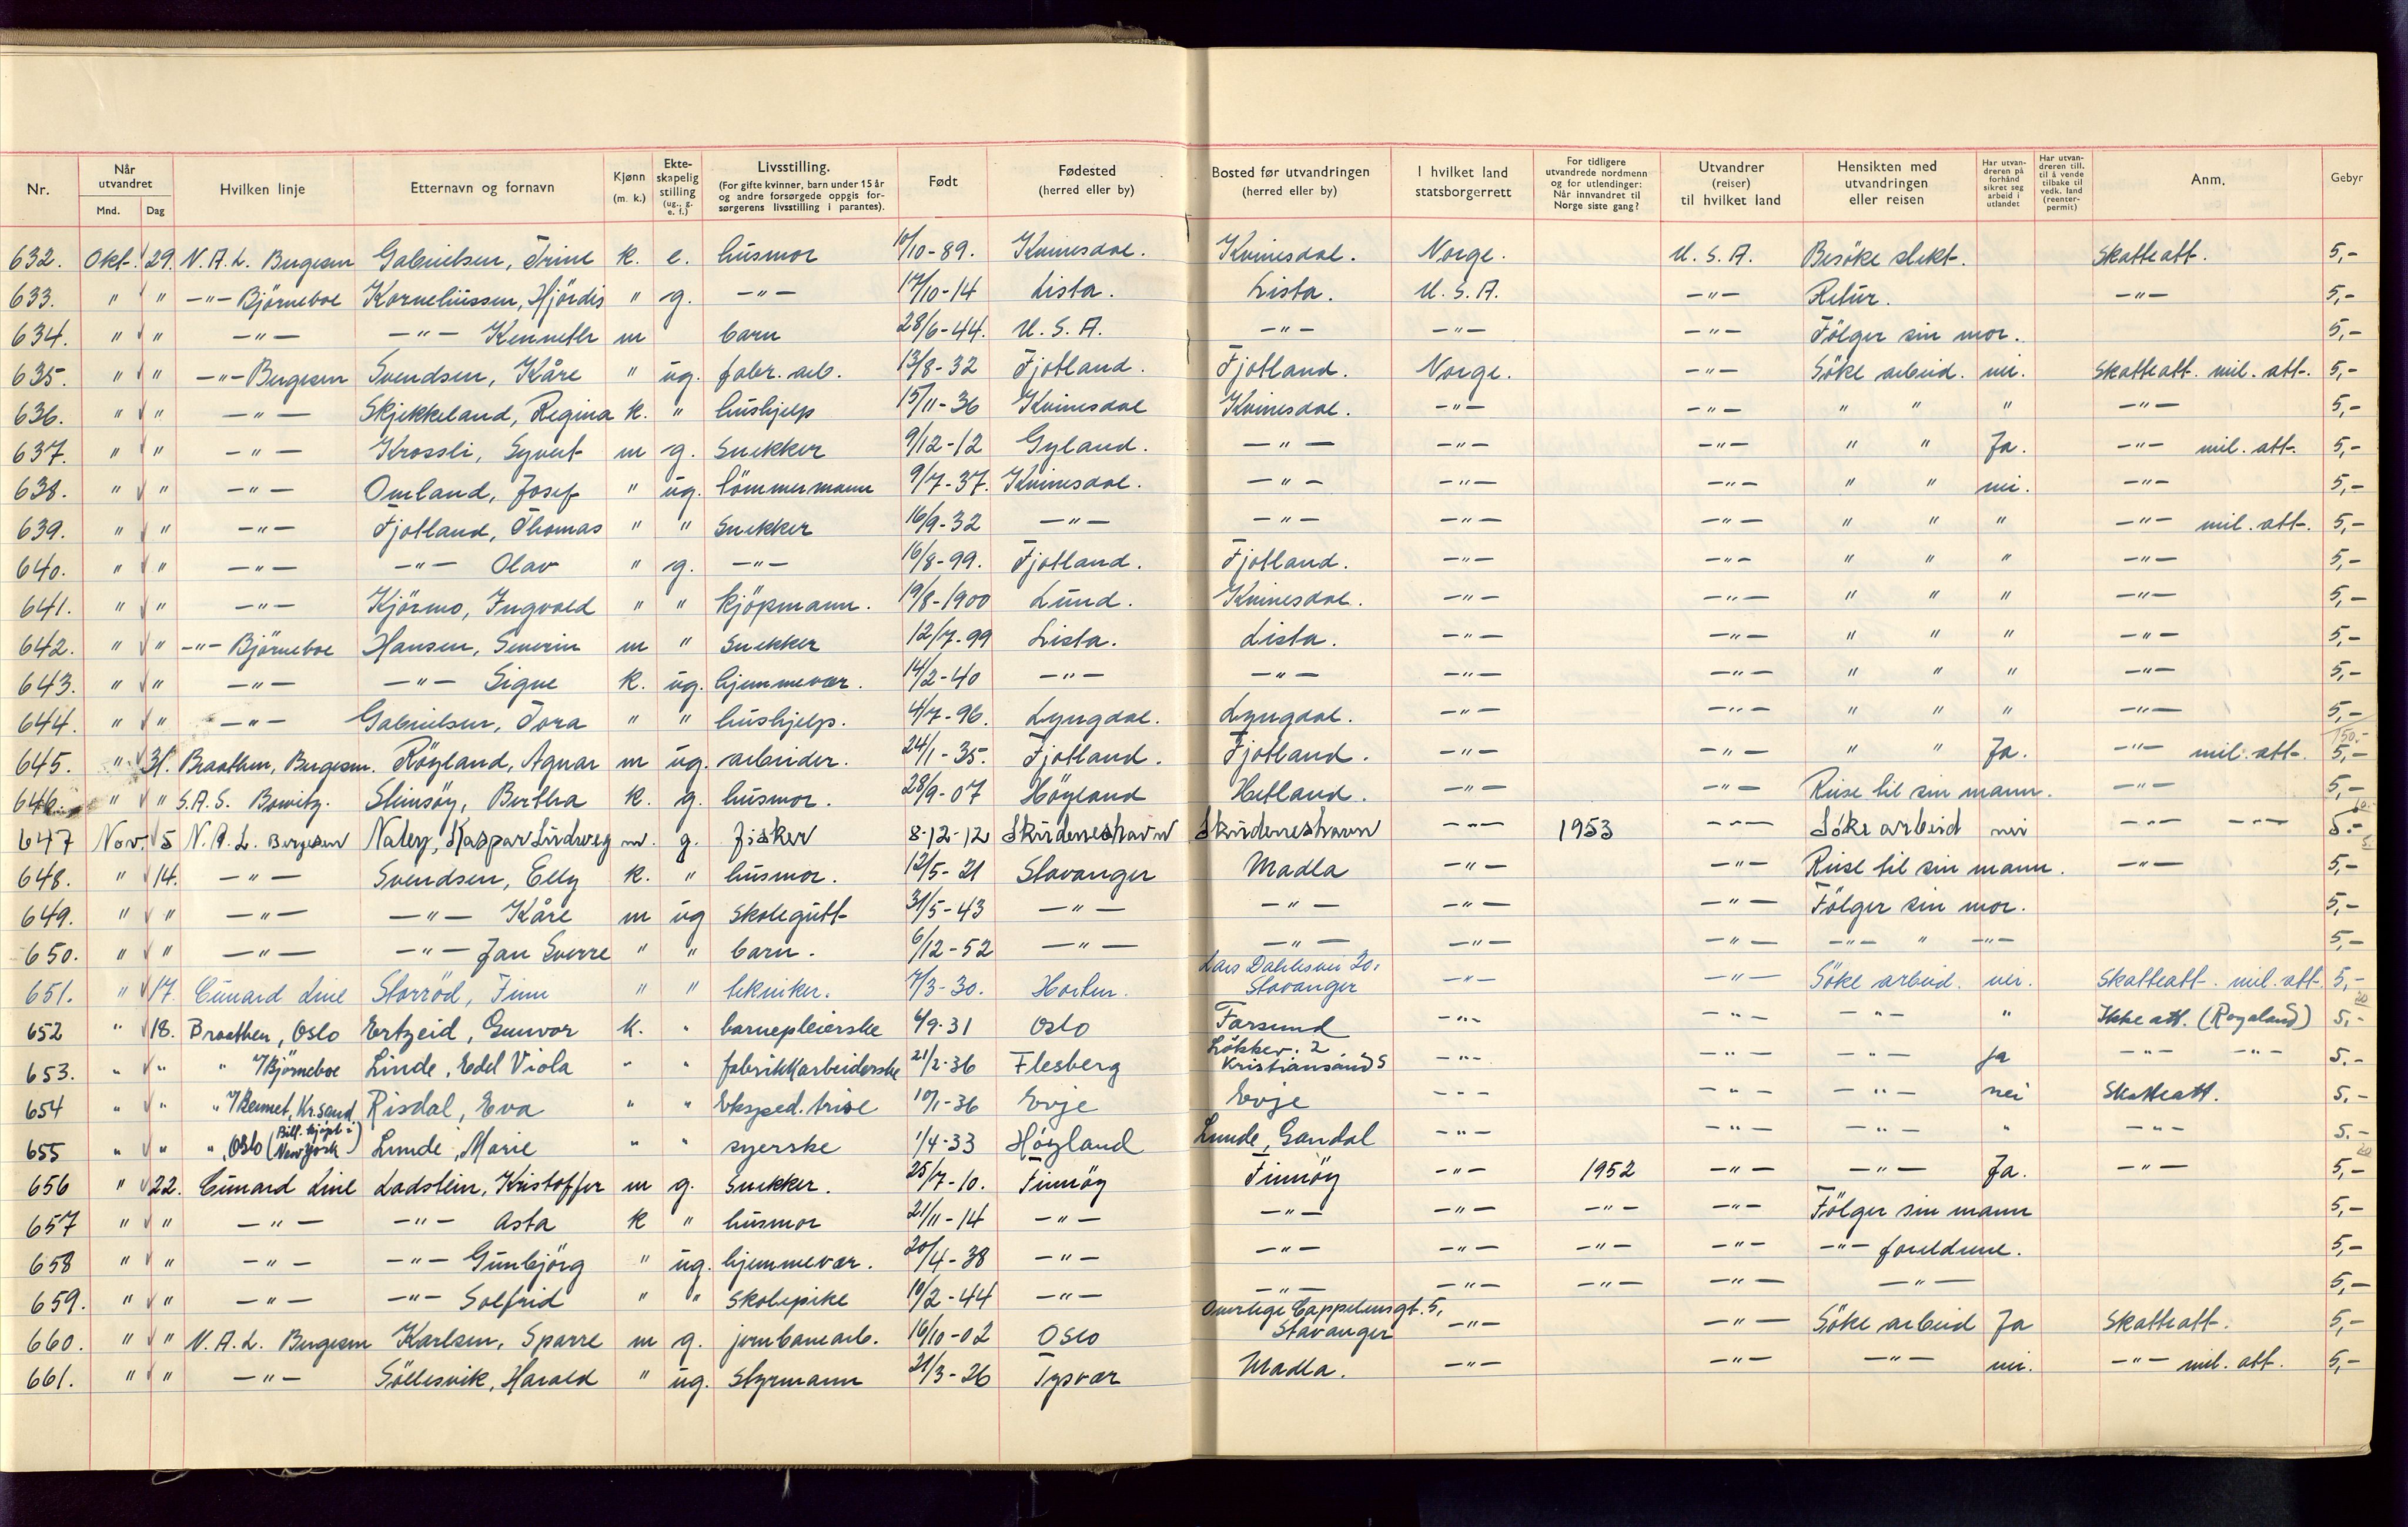 Nr. Når utvandret Mnd. Dag Hvilken linje Etternavn og fornavn Kjønn (m. k.) Ekteskapelig stilling (ug., g. e. f.) Livsstilling. (For gifte kvinner, barn under 15 år og andre forsørgede oppgis forsørgerens livsstilling i parantes). Født Fødested (herred eller by) Bosted før utvandringen (herred eller by) I hvilket land statsborgerrett For tidligere utvandrede nordmenn og for utlendinger: Når innvandret til Norge siste gang? Utvandrer (reiser) til hvilket land Hensikten med utvandringen eller reisen Har utvandreren på forhånd sikret seg arbeid i utlandet Har utvandreren till. til å vende tilbake til vedk. land (reenterpermit) Anm. Gebyr
632. Okt. 29. N. A. L. Bergesen Gabrielsen, Trine k. e. husmor 10/10-89. Kvinesdal. Kvinesdal. Norge. U. S. A. Besöke slekt. Skatteatt. 5,-
633. " " -"- Björneboe Korneliussen, Hjördis " g. -"- 17/10-14 Lista. Lista. U. S. A. -"- Retur. -"- 5,-
634. " " -"- -"- Kenneth m barn 28/6-44. U. S. A. -"- -"- -"- Fölger sin mor. 5,-
635. " " -"- Bergesen Svendsen, Kåre " ug. fabr. arb. 13/8-32 Fjotland. Fjotland. Norge. -"- Söke arbeid. nei. Skatteatt. mil. att. 5,-
636. " " -"- Skjekkeland, Regina k. " hushjelp 15/11-36 Kvinesdal Kvinesdal. -"- -"- " " " -"- 5,-
637. " " -"- Krossli, Syvert m g. Snekker 9/12-12 Gyland. -"- -"- -"- " " Ja. -"- mil. att. 5,-
638. " " -"- Omland, Josef " ug. tömmermann 9/7-37. Kvinesdal. -"- -"- -"- " " nei. -"- 5,-
639. " " -"- Fjotland, Thomas " " Snekker 16/9-32 -"- -"- -"- -"- " " " -"- mil. att. 5,-
640. " " -"- -"- Olav " g. -"- 16/8-99. Fjotland. Fjotland. -"- -"- " " " -"- 5,-
641. " " -"- Kjörmo, Ingvald " " kjöpmann. 19/8-1900 Lund. Kvinesdal. -"- -"- " " " -"- 5,-
642. " " -"- Björneboe Hansen, Severin m " Snekker 12/7-99 Lista. Lista. -"- -"- " " " -"- 5,-
643. " " -"- -"- Signe k. ug. hjemmevær. 14/2-40 -"- -"- -"- -"- " " " -"- 5,-
644. " " -"- Gabrielsen, Tora " " hushjelp. 4/7-96. Lyngdal. Lyngdal. -"- -"- " " " -"- 5,-
645. " 31. Braathen, Bergesen. Röyland, Agnar m ug. arbeider. 24/1-35. Fjotland. Fjotland. -"- -"- " " Ja. -"- mil. att. 150.- 5,-
646. " " S.A.S. Bowitz. Stimsöy, Bertha k. g. husmor. 28/9-07 Höyland Hetland. -"- -"- Reise til sin mann. -"- 5,-
647 Nov. 5 N. A. L. Bergesen Naley, Kaspar Lindveg m. g. fisker 8-12-12 Skudeneshavn Skudeneshavn -"- 1953 -"- Söke arbeid nei -"- -"- 5.-
648. " 14. -"- Svendsen, Elly k. " husmor. 12/5-21 Stavanger Madla -"- -"- Reise til sin mann. -"- 5,-
649. " " -"- -"- Kåre m ug skolegutt 31/5-43 -"- -"- -"- -"- Fölger sin mor. 5,-
650. " " -"- -"- Jan Sverre " " barn. 6/12-52 -"- -"- -"- -"- -"- " -"- 5,-
651. " 17. Cunard Line Storröd, Finn " " tekniker. 7/3-30. Horten. Lars Dahlesvei 20, Stavanger -"- -"- Söke arbeid. nei. Skatteatt. mil. att. 5,-
652 " 18. Braathen, Oslo Ertzeid, Gunvor k. " barnepleierske 6/9-31 Oslo Farsund -"- -"- -"- " Ikke att. (Rogaland) 5.-
653. " " " v/Björneboe Linde, Edel Viola " " fabrikkarbeiderske 21/2-36 Flesberg Lökkev. 2 Kristiansand S -"- -"- -"- Ja -"- -"- 5.-
654 " " " v/Bennet, Kr.sand Risdal, Eva " " Eksped.trise 10/1-36 Evje Evje -"- -"- -"- nei Skatteatt. 5.-
655 " " ", Oslo (Bill. kjöpt i New York) Lunde, Marie " " syerske 1/4-33 Höyland Lunde, Gandal -"- -"- -"- " -"- 5.-
656 " 22. Cunard Line Ladstein, Kristoffer m g. Snekker. 25/7-10. Finnöy Finnöy -"- 1952 -"- -"- Ja. -"- 5,-
657 " " -"- -"- Asta k " husmor 21/11-14 -"- -"- -"- -"- -"- Fölger sin mann 5,-
658 " " -"- -"- Gunbjörg " ug. hjemmevær. 20/4-38 -"- -"- -"- -"- -"- -"- foreldrene. 5,-
659. " " -"- -"- Solfrid " " Skolepike 10/2-44 -"- -"- -"- -"- -"- -"- 5,-
660. " " N. A. L. Bergesen Karlsen, Sparre m g. jernbanearb. 16/10-02 Oslo Cappelensgt. 5, Stavanger -"- -"- Söke arbeid Ja Skatteatt. 5,-
661. " " -"- Söllesvik, Harald " ug. Styrmann 21/3-26 Tysvær Madla. -"- -"- -"- nei. -"- mil. att. 5,-